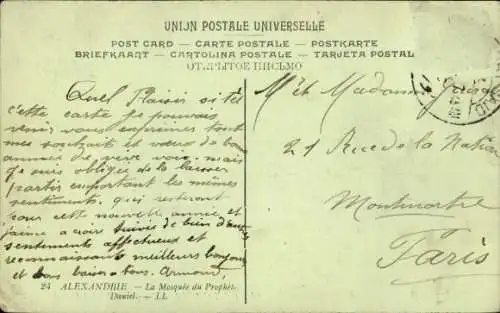 UNION POSTALE UNIVERSELLE
POST CARD — CARTE POSTALE — POSTKARTE
BRIEFKAART — CARTOLINA POSTALE — TARJETA POSTAL
ОТКРЫТОЕ ПИСЬМО
Quel Plaisir si tôt
cette carte je pouvais
venir vous exprimer tout
mes souhait et vœux de bon
année de vive voix mais
je suis obligé de la laisser
partir emportant les mêmes
sentiments. qui resteront
pour cette nouvelle année et
j'aime a croire suivie de bien d'autres
sentements affectueux et
reconnaissants meilleurs bonjour
et bons baisers a tous. Armand,
24 ALEXANDRIE. — La Mosquée du Prophète
Daniel. — LL
Mr et Madame
21 Rue de la Nation
Montmartre
Paris